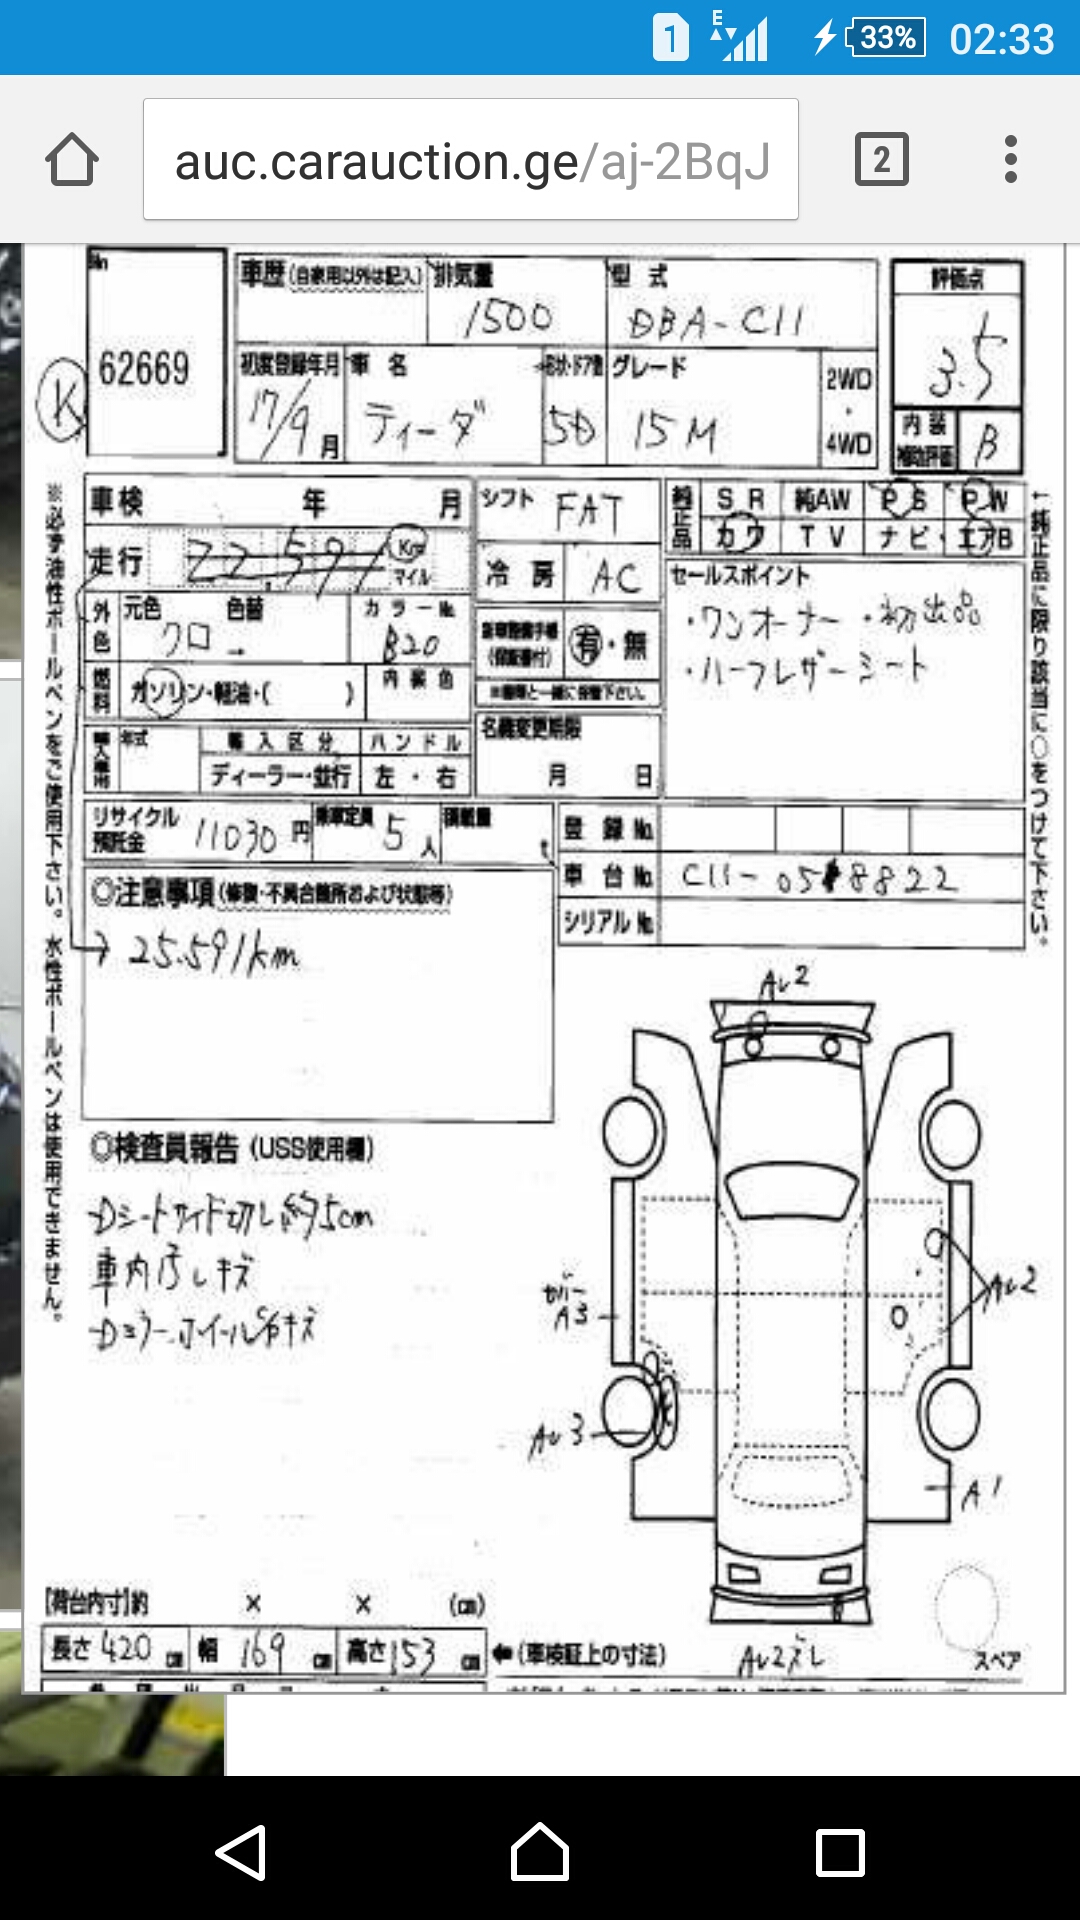 1 E 33% 02:33
auc.carauction.ge/aj-2BqJ 2
No 62669
K
車歴(自家用以外は記入) 排気量 1500 型式 DBA-C11
評価点 3.5
初度登録年月 17/9月 車名 ティーダ 形状・ドア数 5D グレード 15M 2WD・4WD
内装補助評価 B
車検 年 月
走行 Km マイル
外色 元色 クロ 色替 カラーNo. B20
燃料 ガソリン・軽油・( ) 内装色
年式 輸入区分 ハンドル
ディーラー・並行 左・右
シフト FAT
冷房 AC
(保証書付) 有・無
名義変更期限
月 日
純正品 SR 純AW PS PW
カワ TV ナビ・エアB
セールスポイント
・ワンオーナー ・初出品
・ハーフレザーシート
リサイクル預託金 11030円 乗車定員 5人 積載量 t
登録No.
車台No. C11-058822
シリアルNo.
◎注意事項(修復・不具合箇所および状態等)
→ 25.591km
◎検査員報告 (USS使用欄)
Dシートサイド切し約5cm
車内汚レキズ
Dミラー
※必ず油性ボールペンをご使用下さい。水性ボールペンは使用できません。
←純正品に限り該当に○をつけて下さい。
A3
A1
スペア
[荷台内寸]約 × × (cm)
長さ 420 cm 幅 169 cm 高さ 153 cm ←(車検証上の寸法)